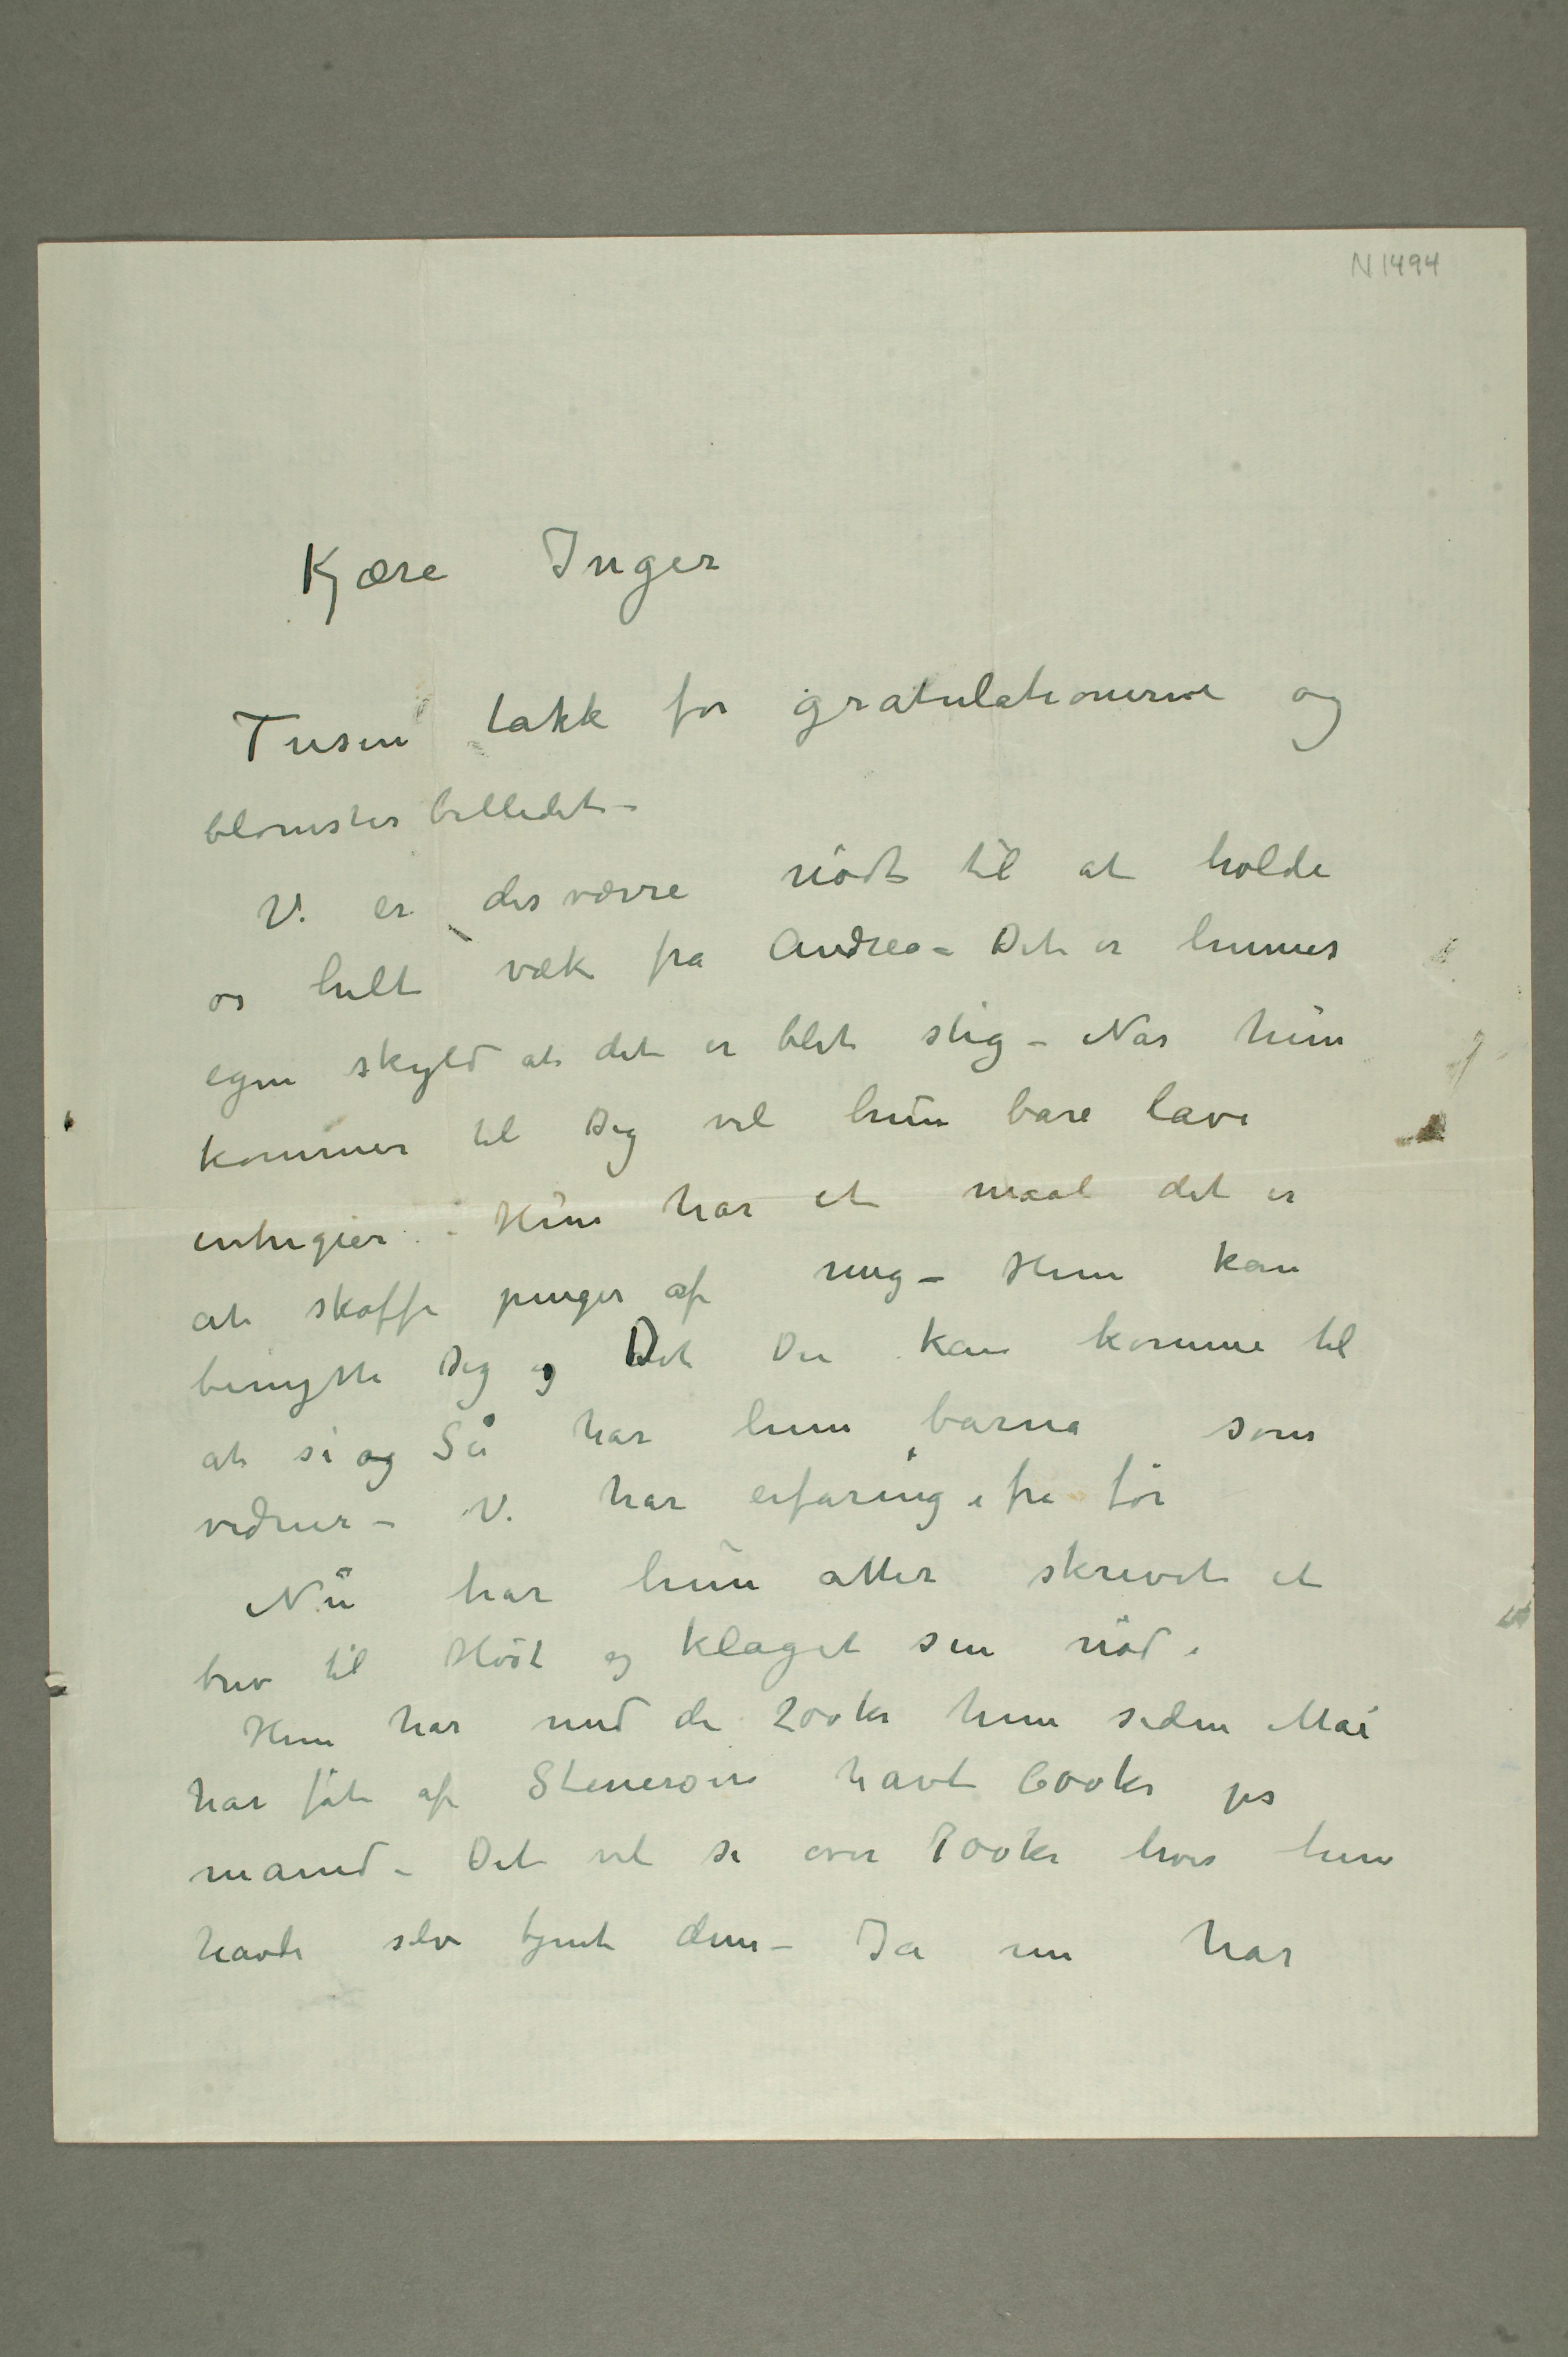 N 1494
Kjære Inger
Tusen takk for gratulationerne og
blomsterbilledet –
Vi er desværre nödt til at holde
os helt væk fra Andrea – Det er hennes
egen skyld at det er blet slig – Når hun
kommer til Dig vil hun bare lave
intrigier. – Hun har et maal det er
at skaffe penger af mig – Hun kan
benytte Dig og Det Du kan komme til
at si og Så har hun barna som
vidner – Vi har erfaring ifra för
Nu har hun atter skrevet et
brev til Höst og klaget sin nöd.
Hun har med de 200 kr hun siden Mai
har fåt af Stenersen havt 600 kr pr
måned – Det vil si over 700 kr hvis hun
havde selv tjent dem – Ja nu har